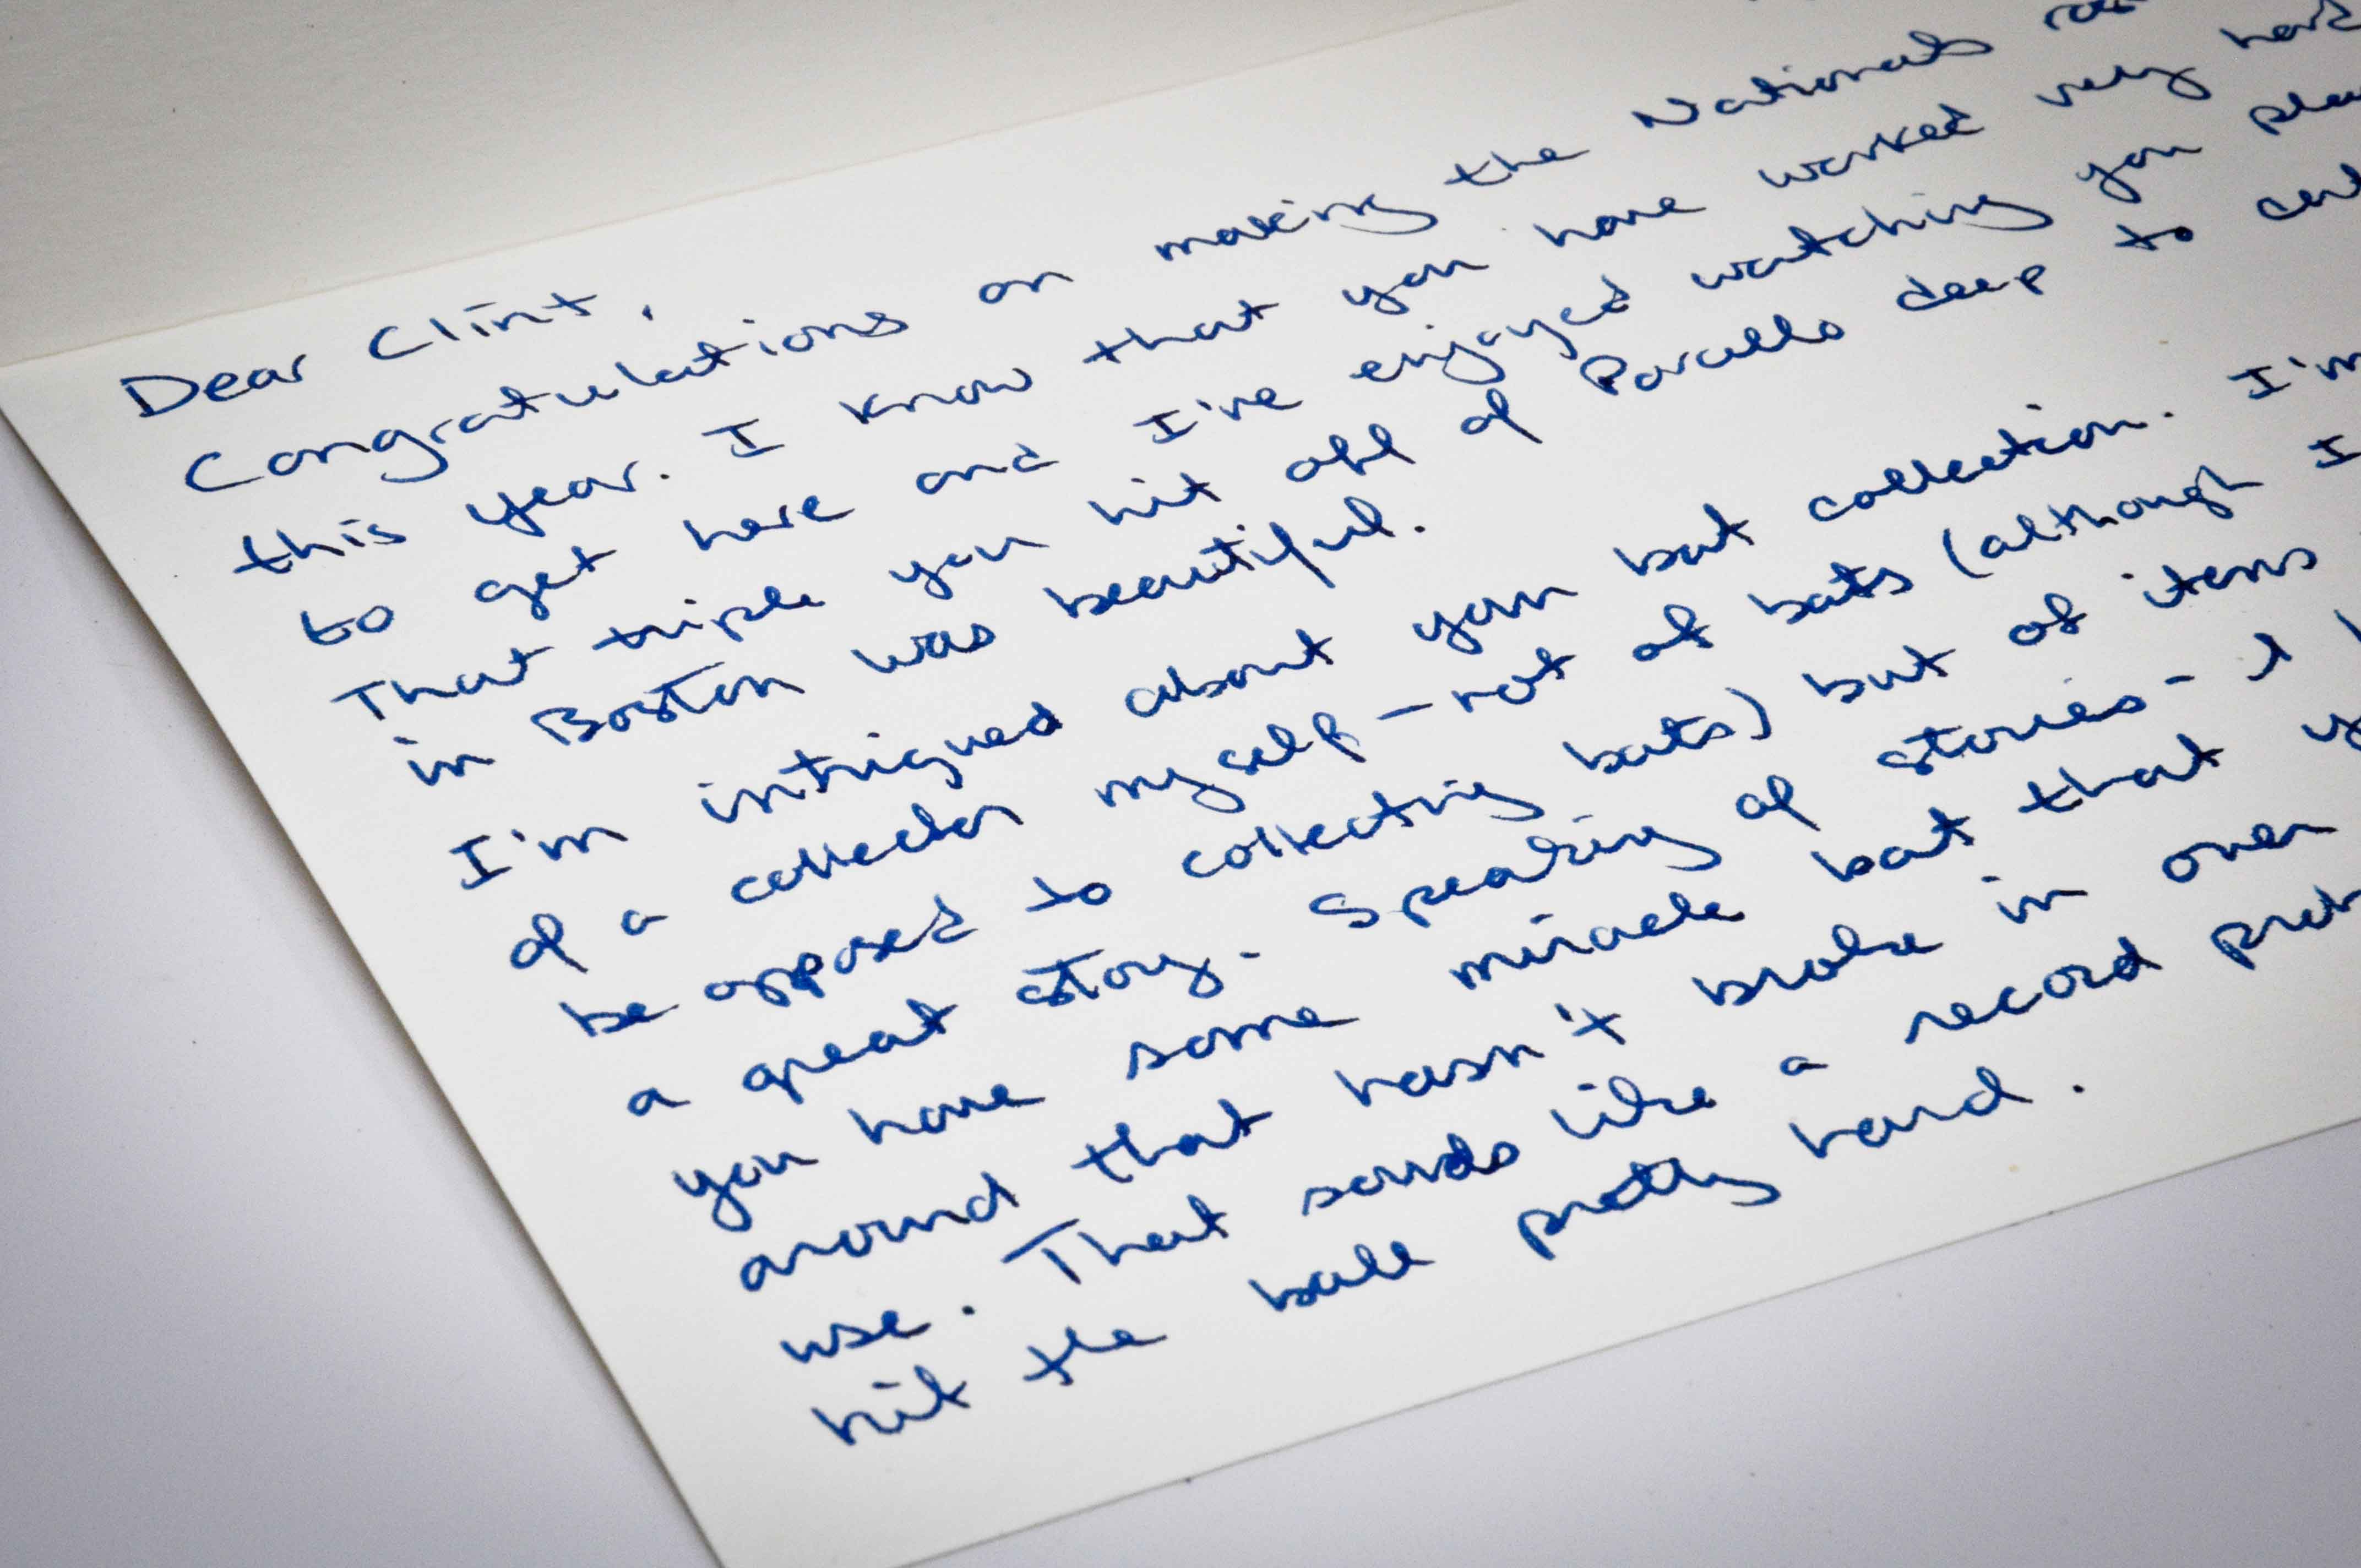 Dear Clint,
Congratulations on making the Nationals
this year. I know that you have worked very hard
to get here and I've enjoyed watching you
That triple you hit off of Porcello deep to
in Boston was beautiful.
I'm intrigued about your bat collection. I'm
of a collector myself - not of bats (although I
be opposed to collecting bats) but of items
a great story. Speaking of stories - I
you have some miracle bat that
around that hasn't broke in over
use. That sounds like a record
hit the ball pretty hard.